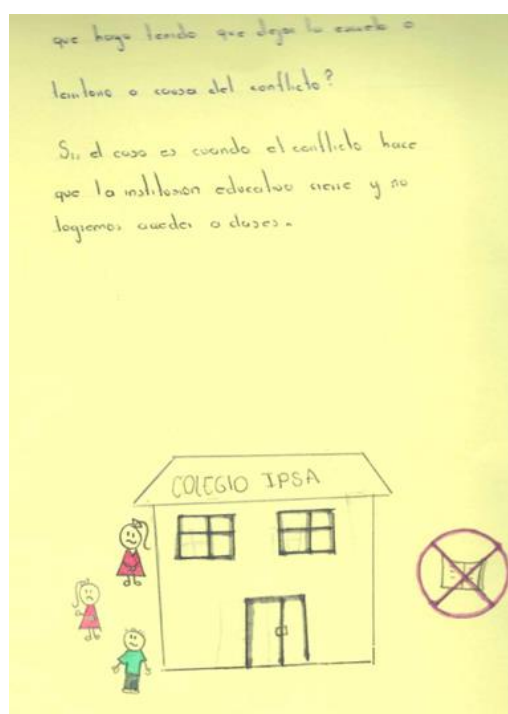 que haya tenido que dejar la escuela o
territorio a causa del conflicto?
Si, el caso es cuando el conflicto hace
que la institusion educativa cierre y no
logremos acceder a clases.
COLEGIO IPSA